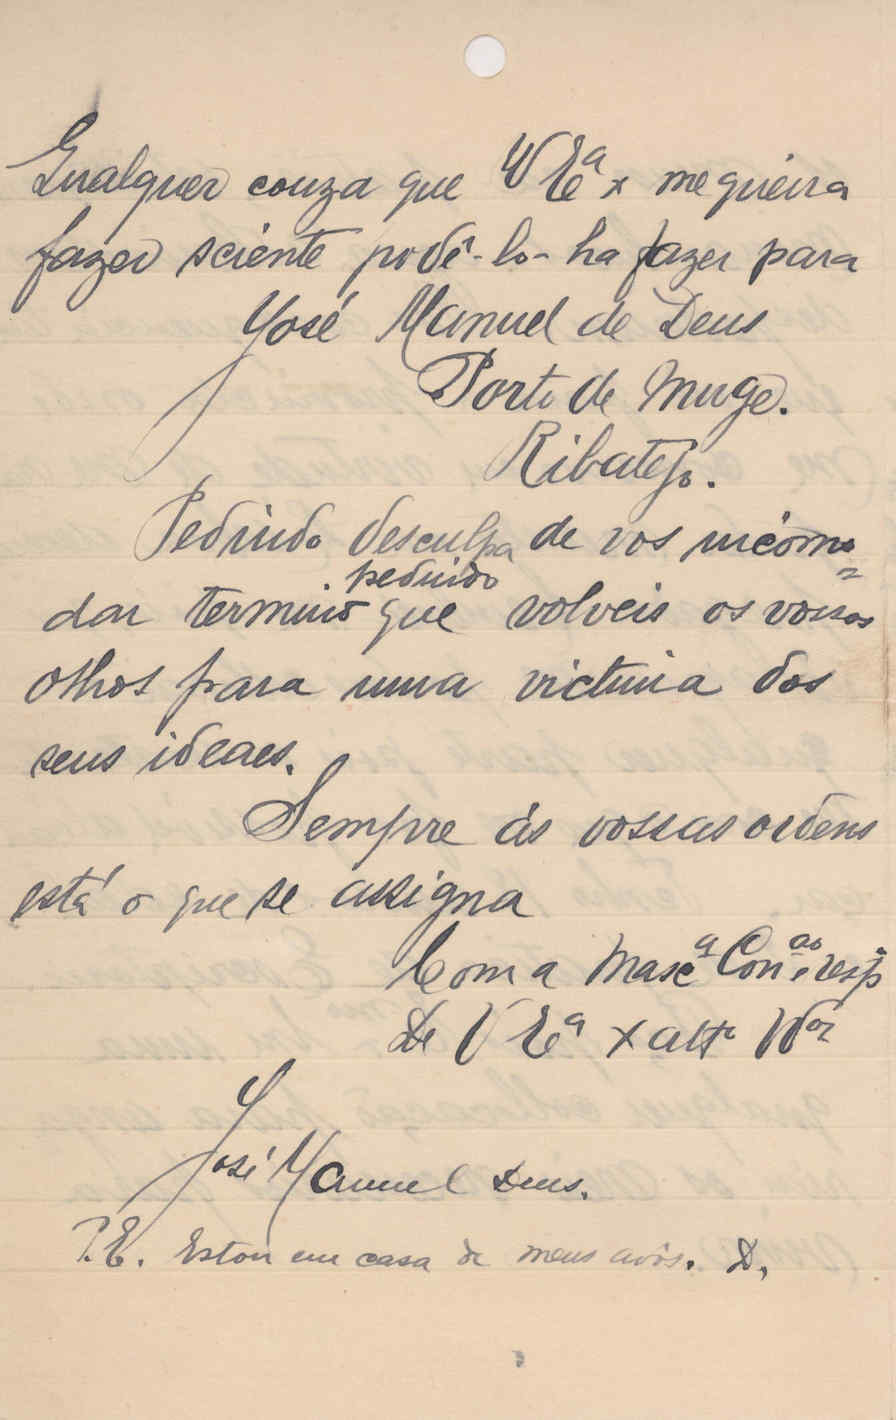 Qualquer couza que V Eª x me queira
fazer sciente podê-lo-ha fazer para
José Manuel de Deus
Porto de Muge.
Ribatejo.
Pedindo desculpa de vos incómo=
dar termino pedindo que volveis os vossos
olhos para uma victima dos
seus ideaes.
Sempre ás vossas ordens
está o que se assigna
Com a Mase.ª Con.ão resp
De V Eª x att.º V.or
José Manuel Deus.
P.E. Estou em casa de meus avós. D.